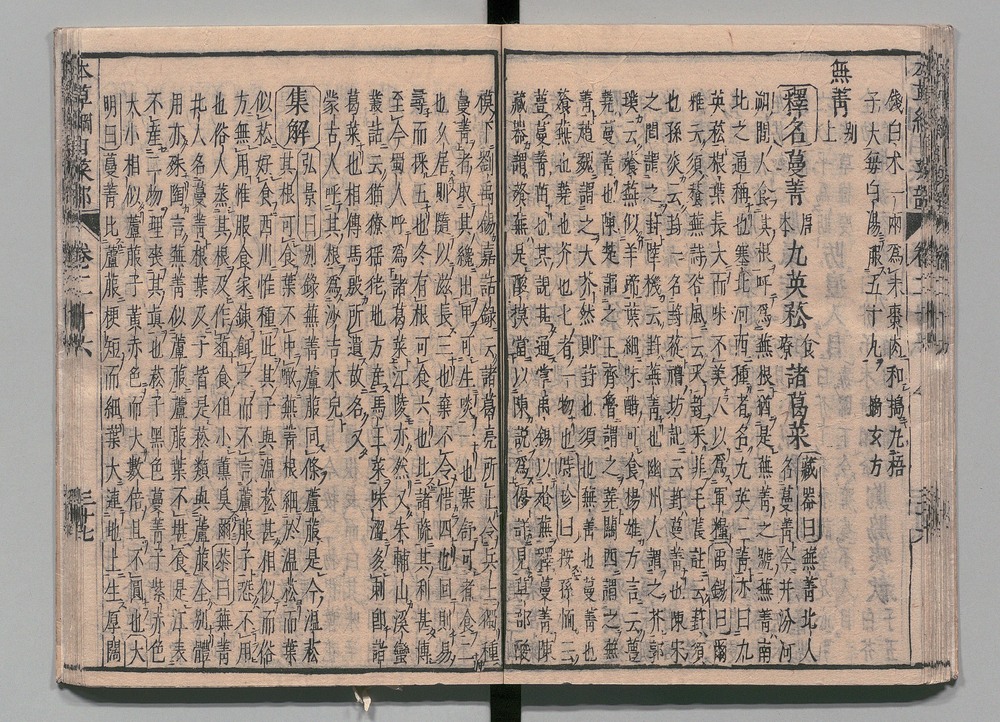 錢白术一兩爲末棗肉和搗丸梧
子大每白湯服五十九 摘玄方
無菁 别上
釋名 蔓菁 唐本 九英菘 食療 諸葛菜 藏器曰蕪菁北人
名蔓菁今并汾河
朔間人食其根呼爲蕪根猶是蕪菁之號蕪菁南
北之通稱也塞北河西種者名九英蔓菁亦曰九
英菘根葉長大而味不美人以爲軍糧禹錫曰爾
雅云須薞蕪詩谷風云采葑采菲毛萇註云葑須
也孫炎云葑一名葑蓯禮坊記云葑蔓菁也陳宋
之間謂之葑陸機云葑蕪菁也幽州人謂之芥郭
璞云薞蕪似羊蹄葉細味酢可食揚雄方言云蘴
蕘蔓菁也陳楚謂之蘴齊魯謂之蕘關西謂之蕪
菁趙魏謂之大芥然則葑也須也蕪菁也蔓菁也
薞蕪也蕘也芥也七者一物也時珍曰按孫愐云
蘴蔓菁苗也其説甚通掌禹錫以薞蕪釋蔓菁陳
藏器謂薞蕪是酸模當以陳説爲優詳見草部酸
模下劉禹錫嘉話録云諸葛亮所止令兵士獨種
蔓菁者取其纔出甲可生啖一也葉舒可煮食二
也久居則隨以滋長三也棄不令惜四也回則易
尋而采五也冬有根可食六也比諸蔬其利甚博
至今蜀人呼爲諸葛菜江陵亦然又朱輔山溪蠻
叢話云猫獠猺狫地方産馬王菜味澀多刺卽諸
葛菜也相傳馬殷所遺故名又
蒙古人呼其根爲沙吉木兒
集解 弘景曰别録蕪菁蘆菔同條蘆菔是今溫菘
其根可食葉不中啖蕪菁根細於溫菘而葉
似菘好食西川惟種此其子與溫菘甚相似而俗
方無用惟服食家鍊餌之而不言蘆菔子恐不用
也俗人蒸其根及作葅食但小薰臭爾恭曰蕪菁
北人名蔓菁根葉及子皆是菘類與蘆菔全别體
用亦殊陶言蕪菁似蘆菔蘆菔葉不堪食是江表
不産二物理喪其真也菘子黑色蔓菁子紫赤色
大小相似蘆菔子黄赤色而大數倍且不圓也大
明曰蔓菁比蘆菔梗短而細葉大連地上生厚闊